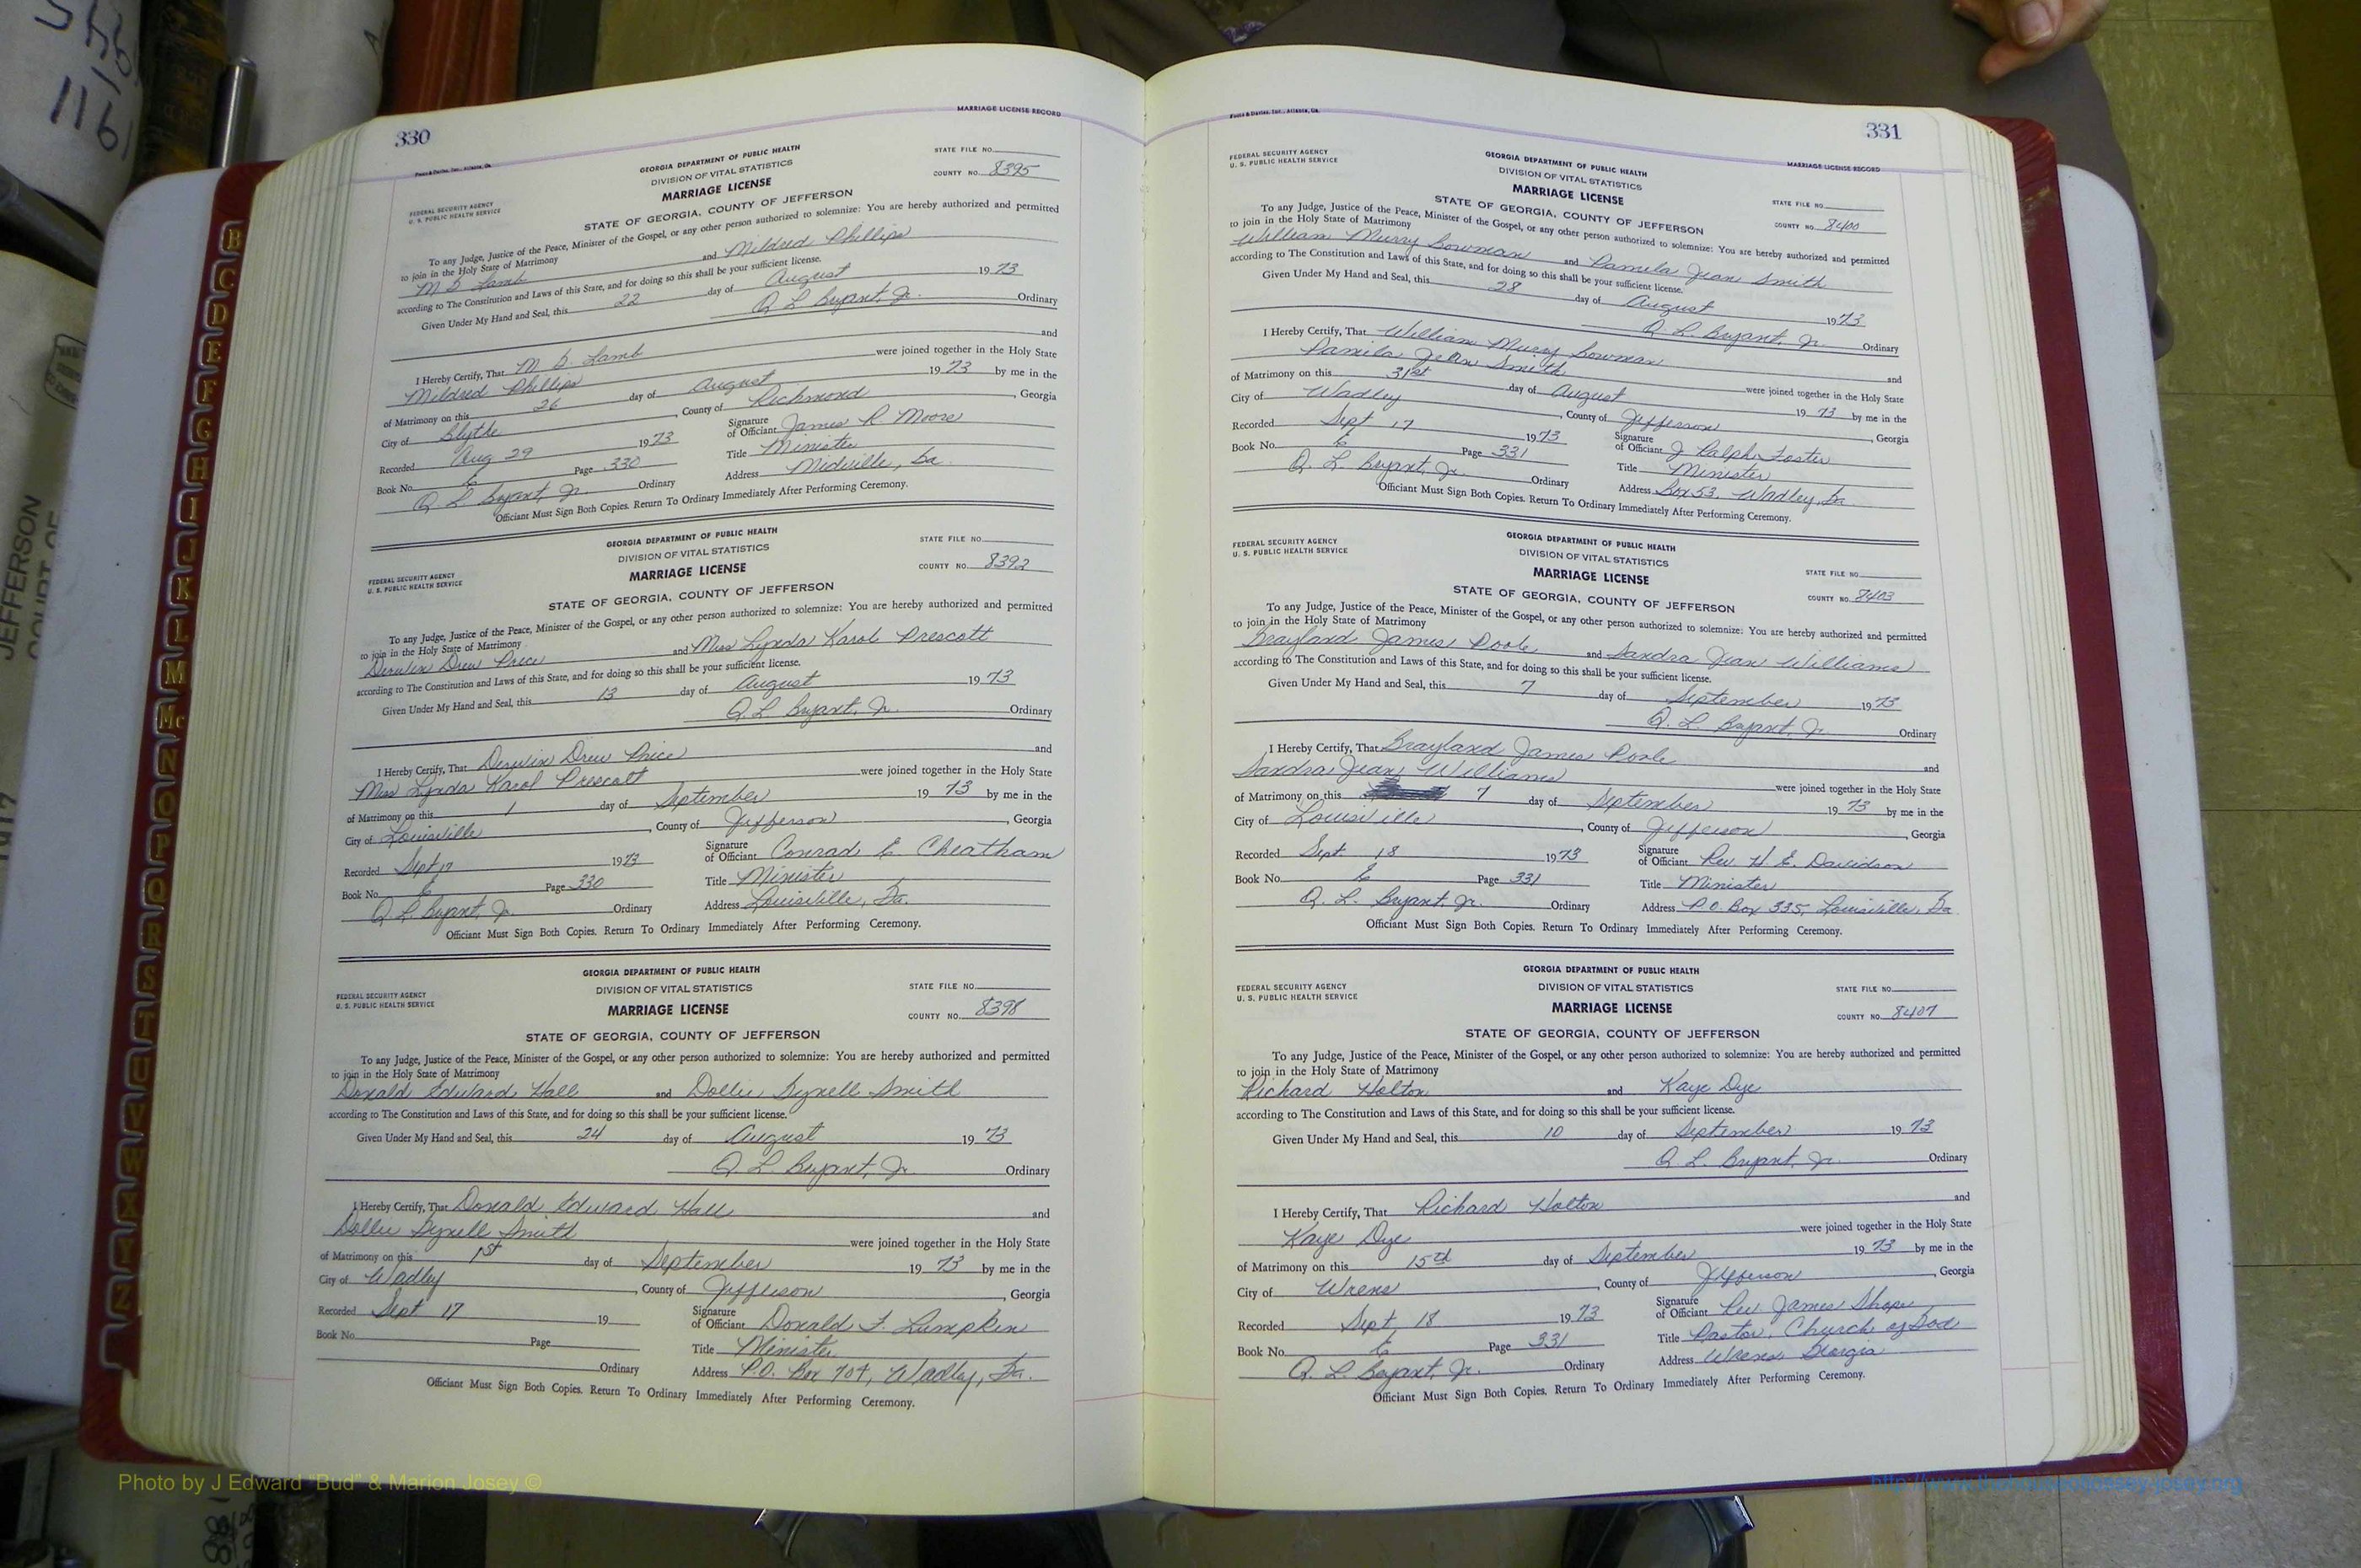 330
MARRIAGE LICENSE RECORD
Foote & Davies, Inc., Atlanta, Ga.
GEORGIA DEPARTMENT OF PUBLIC HEALTH
DIVISION OF VITAL STATISTICS
MARRIAGE LICENSE
STATE FILE NO.
COUNTY NO. 8395
FEDERAL SECURITY AGENCY
U. S. PUBLIC HEALTH SERVICE
STATE OF GEORGIA, COUNTY OF JEFFERSON
To any Judge, Justice of the Peace, Minister of the Gospel, or any other person authorized to solemnize: You are hereby authorized and permitted
to join in the Holy State of Matrimony
M B Lamb and Mildred Phillips
according to The Constitution and Laws of this State, and for doing so this shall be your sufficient license.
Given Under My Hand and Seal, this 22 day of August 1973
Q L Bryant, Jr. Ordinary
I Hereby Certify, That M B Lamb and
Mildred Phillips were joined together in the Holy State
of Matrimony on this 26 day of August 1973 by me in the
City of Blythe, County of Richmond, Georgia
Recorded Aug 29 1973 Signature of Officiant James R Moore
Book No. E Page 330 Title Minister
Q L Bryant, Jr. Ordinary Address Midville, Ga.
Officiant Must Sign Both Copies. Return To Ordinary Immediately After Performing Ceremony.
GEORGIA DEPARTMENT OF PUBLIC HEALTH
DIVISION OF VITAL STATISTICS
MARRIAGE LICENSE
STATE FILE NO.
COUNTY NO. 8392
FEDERAL SECURITY AGENCY
U. S. PUBLIC HEALTH SERVICE
STATE OF GEORGIA, COUNTY OF JEFFERSON
To any Judge, Justice of the Peace, Minister of the Gospel, or any other person authorized to solemnize: You are hereby authorized and permitted
to join in the Holy State of Matrimony
Derwin Drew Price and Miss Lynda Karol Prescott
according to The Constitution and Laws of this State, and for doing so this shall be your sufficient license.
Given Under My Hand and Seal, this 13 day of August 1973
Q. L. Bryant, Jr. Ordinary
I Hereby Certify, That Derwin Drew Price and
Miss Lynda Karol Prescott were joined together in the Holy State
of Matrimony on this 1 day of September 1973 by me in the
City of Louisville, County of Jefferson, Georgia
Recorded Sept 17 1973 Signature of Officiant Conrad C. Cheatham
Book No. E Page 330 Title Minister
Q L Bryant, Jr. Ordinary Address Louisville, Ga.
Officiant Must Sign Both Copies. Return To Ordinary Immediately After Performing Ceremony.
GEORGIA DEPARTMENT OF PUBLIC HEALTH
DIVISION OF VITAL STATISTICS
MARRIAGE LICENSE
STATE FILE NO.
COUNTY NO. 8398
FEDERAL SECURITY AGENCY
U. S. PUBLIC HEALTH SERVICE
STATE OF GEORGIA, COUNTY OF JEFFERSON
To any Judge, Justice of the Peace, Minister of the Gospel, or any other person authorized to solemnize: You are hereby authorized and permitted
to join in the Holy State of Matrimony
Donald Edward Hall and Dollie Synell Smith
according to The Constitution and Laws of this State, and for doing so this shall be your sufficient license.
Given Under My Hand and Seal, this 24 day of August 1973
Q L Bryant, Jr. Ordinary
I Hereby Certify, That Donald Edward Hall and
Dollie Synell Smith were joined together in the Holy State
of Matrimony on this 1st day of September 1973 by me in the
City of Wadley, County of Jefferson, Georgia
Recorded Sept 17 19 Signature of Officiant Donald F. Lumpkin
Book No. Page Title Minister
Ordinary Address P.O. Box 704, Wadley, Ga.
Officiant Must Sign Both Copies. Return To Ordinary Immediately After Performing Ceremony.
331
Foote & Davies, Inc., Atlanta, Ga.
MARRIAGE LICENSE RECORD
FEDERAL SECURITY AGENCY
U. S. PUBLIC HEALTH SERVICE
GEORGIA DEPARTMENT OF PUBLIC HEALTH
DIVISION OF VITAL STATISTICS
MARRIAGE LICENSE
STATE FILE NO.
COUNTY NO. 8400
STATE OF GEORGIA, COUNTY OF JEFFERSON
To any Judge, Justice of the Peace, Minister of the Gospel, or any other person authorized to solemnize: You are hereby authorized and permitted
to join in the Holy State of Matrimony
William Murry Bowman and Pamila Jean Smith
according to The Constitution and Laws of this State, and for doing so this shall be your sufficient license.
Given Under My Hand and Seal, this 28 day of August 1973
Q. L. Bryant, Jr. Ordinary
I Hereby Certify, That William Murry Bowman and
Pamila Jean Smith were joined together in the Holy State
of Matrimony on this 31st day of August 1973 by me in the
City of Wadley, County of Jefferson, Georgia
Recorded Sept 17 1973 Signature of Officiant J Ralph Foster
Book No. E Page 331 Title Minister
Q. L. Bryant, Jr. Ordinary Address Box 53, Wadley, Ga.
Officiant Must Sign Both Copies. Return To Ordinary Immediately After Performing Ceremony.
FEDERAL SECURITY AGENCY
U. S. PUBLIC HEALTH SERVICE
GEORGIA DEPARTMENT OF PUBLIC HEALTH
DIVISION OF VITAL STATISTICS
MARRIAGE LICENSE
STATE FILE NO.
COUNTY NO. 8403
STATE OF GEORGIA, COUNTY OF JEFFERSON
To any Judge, Justice of the Peace, Minister of the Gospel, or any other person authorized to solemnize: You are hereby authorized and permitted
to join in the Holy State of Matrimony
Grayland James Poole and Sandra Jean Williams
according to The Constitution and Laws of this State, and for doing so this shall be your sufficient license.
Given Under My Hand and Seal, this 7 day of September 1973
Q. L. Bryant, Jr. Ordinary
I Hereby Certify, That Grayland James Poole and
Sandra Jean Williams were joined together in the Holy State
of Matrimony on this 7 day of September 1973 by me in the
City of Louisville, County of Jefferson, Georgia
Recorded Sept. 18 1973 Signature of Officiant Rev H. E. Davidson
Book No. E Page 331 Title Minister
Q. L. Bryant, Jr. Ordinary Address P.O. Box 335, Louisville, Ga
Officiant Must Sign Both Copies. Return To Ordinary Immediately After Performing Ceremony.
FEDERAL SECURITY AGENCY
U. S. PUBLIC HEALTH SERVICE
GEORGIA DEPARTMENT OF PUBLIC HEALTH
DIVISION OF VITAL STATISTICS
MARRIAGE LICENSE
STATE FILE NO.
COUNTY NO. 8407
STATE OF GEORGIA, COUNTY OF JEFFERSON
To any Judge, Justice of the Peace, Minister of the Gospel, or any other person authorized to solemnize: You are hereby authorized and permitted
to join in the Holy State of Matrimony
Richard Holton and Kaye Dye
according to The Constitution and Laws of this State, and for doing so this shall be your sufficient license.
Given Under My Hand and Seal, this 10 day of September 1973
Q. L. Bryant, Jr. Ordinary
I Hereby Certify, That Richard Holton and
Kaye Dye were joined together in the Holy State
of Matrimony on this 15th day of September 1973 by me in the
City of Wrens, County of Jefferson, Georgia
Recorded Sept 18 1973 Signature of Officiant Rev James Shope
Book No. E Page 331 Title Pastor, Church of God
Q. L. Bryant, Jr. Ordinary Address Wrens Georgia
Officiant Must Sign Both Copies. Return To Ordinary Immediately After Performing Ceremony.
B
C
D
E
F
G
H
I
J
K
L
M
Mc
N
O
P
Q
R
S
T
U
V
W
X
Y
Z
JEFFERSON
COURT OF
Photo by J Edward "Bud" & Marion Josey ©